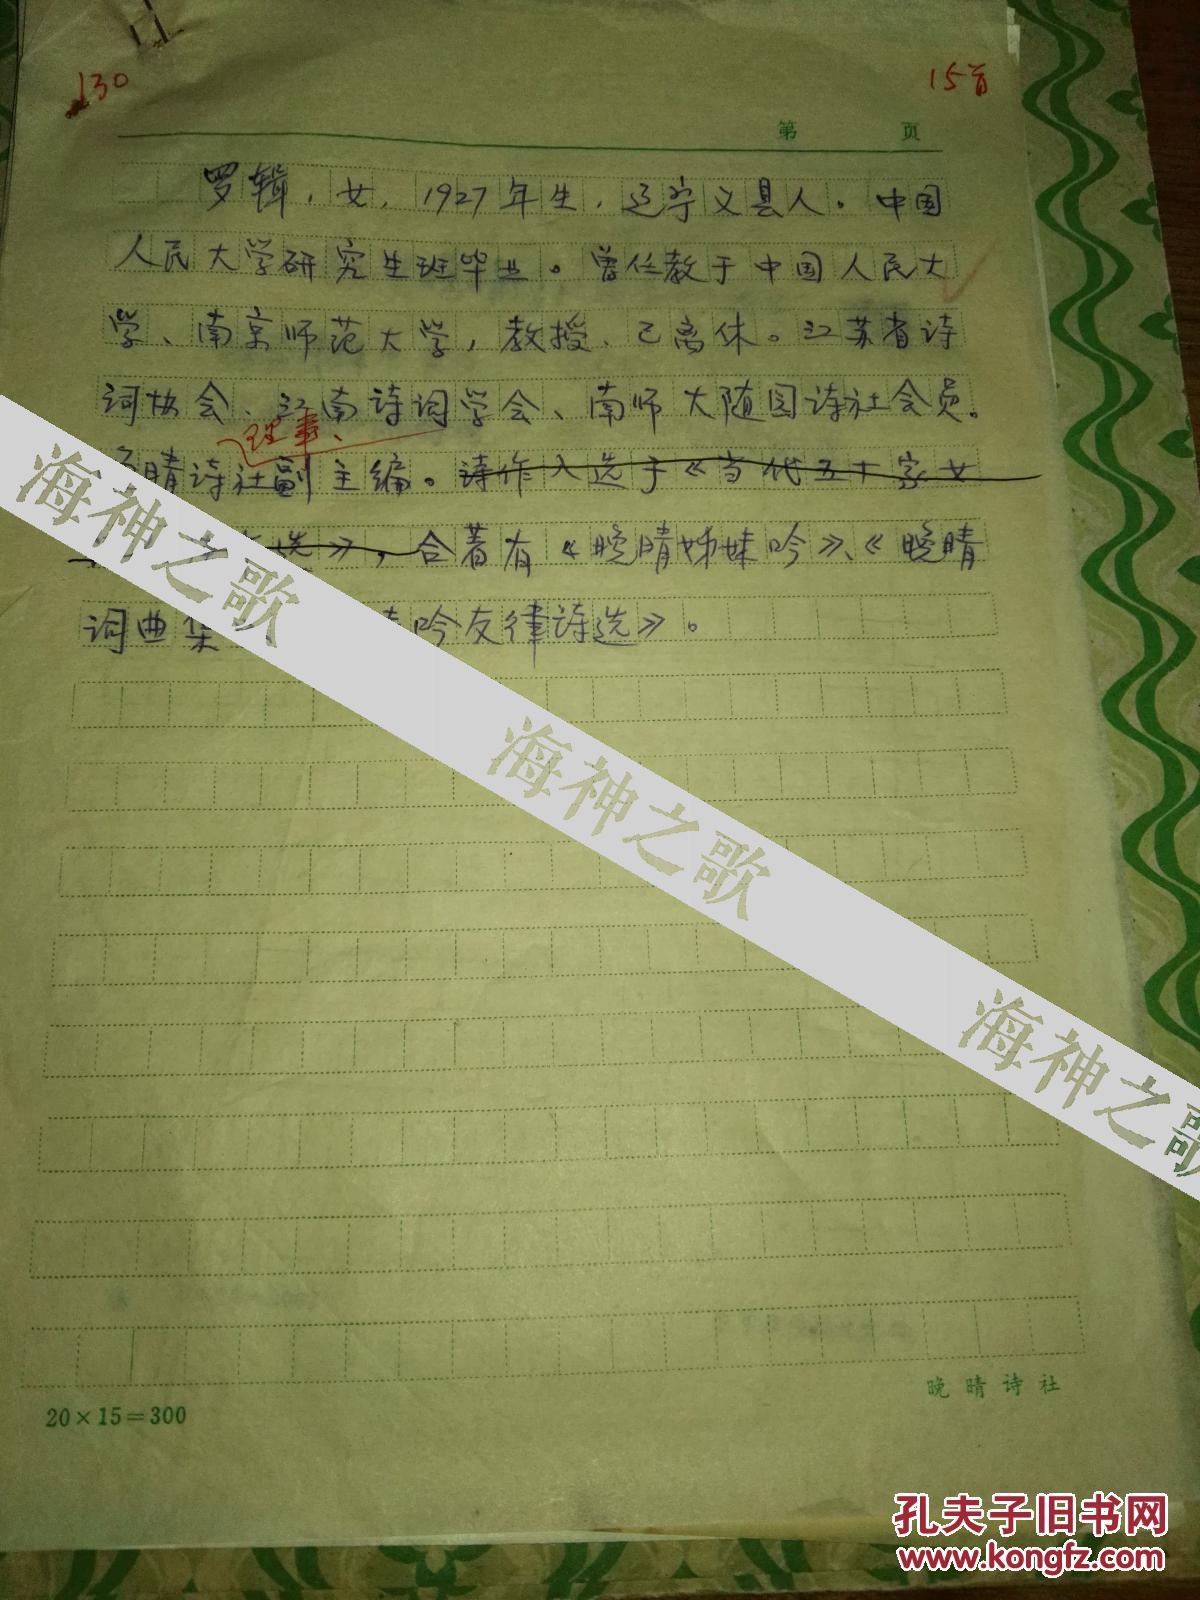 130
15首
第 页
罗辑，女，1927年生，辽宁义县人。中国
人民大学研究生班毕业。曾任教于中国人民大
学、南京师范大学，教授、已离休。江苏省诗
词协会、江南诗词学会、南师大随园诗社会员。
理事、
晴诗社副主编。诗作入选于《当代五十家女
选》，合著有《晚晴姊妹吟》、《晚晴
词曲集 吟友律诗选》。
海神之歌
海神之歌
海神之歌
晚晴诗社
20×15=300
孔夫子旧书网
www.kongfz.com